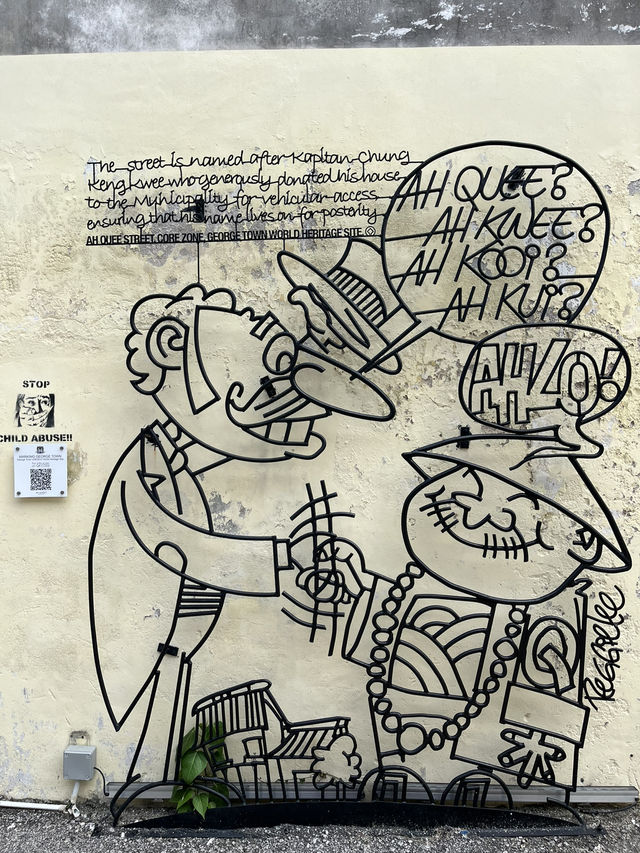 The street is named after Kapitan Chung
Keng Kwee who generously donated his house
to the Municipality for vehicular access
ensuring that his name lives on for posterity
AH QUEE STREET, CORE ZONE, GEORGE TOWN WORLD HERITAGE SITE.
AH QUEE?
AH KWEE?
AH KOOI?
AH KUI?
AH LO!
STOP
CHILD ABUSE!!
MARKING GEORGE TOWN
Reggie Lee